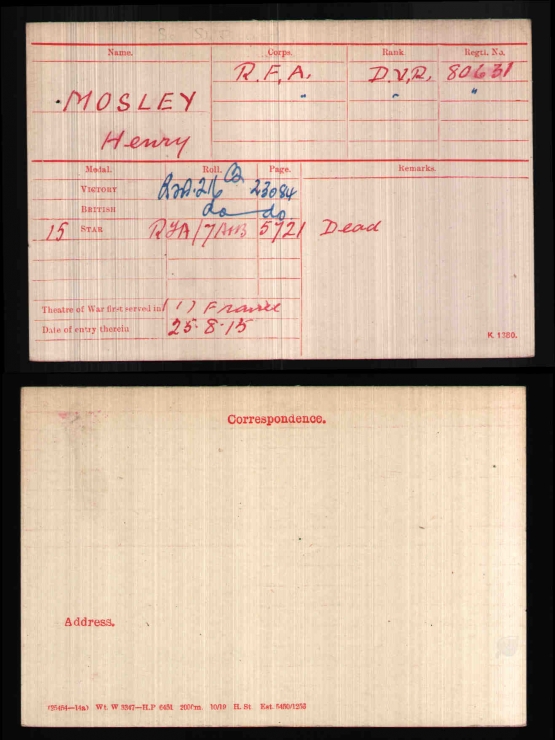 Name. Corps. Rank Regtl. No.
R.F.A. D.V.R. 80631
MOSLEY " " "
Henry
Medal. Roll. Page. Remarks.
VICTORY 216 B 23084
BRITISH do do
15 STAR RFA/7 5721 Dead
Theatre of War first served in (1) France
Date of entry therein 25-8-15
K. 1380.
Correspondence.
Address.
Wt. W 3347—H.P 200m. 10/19 H. St